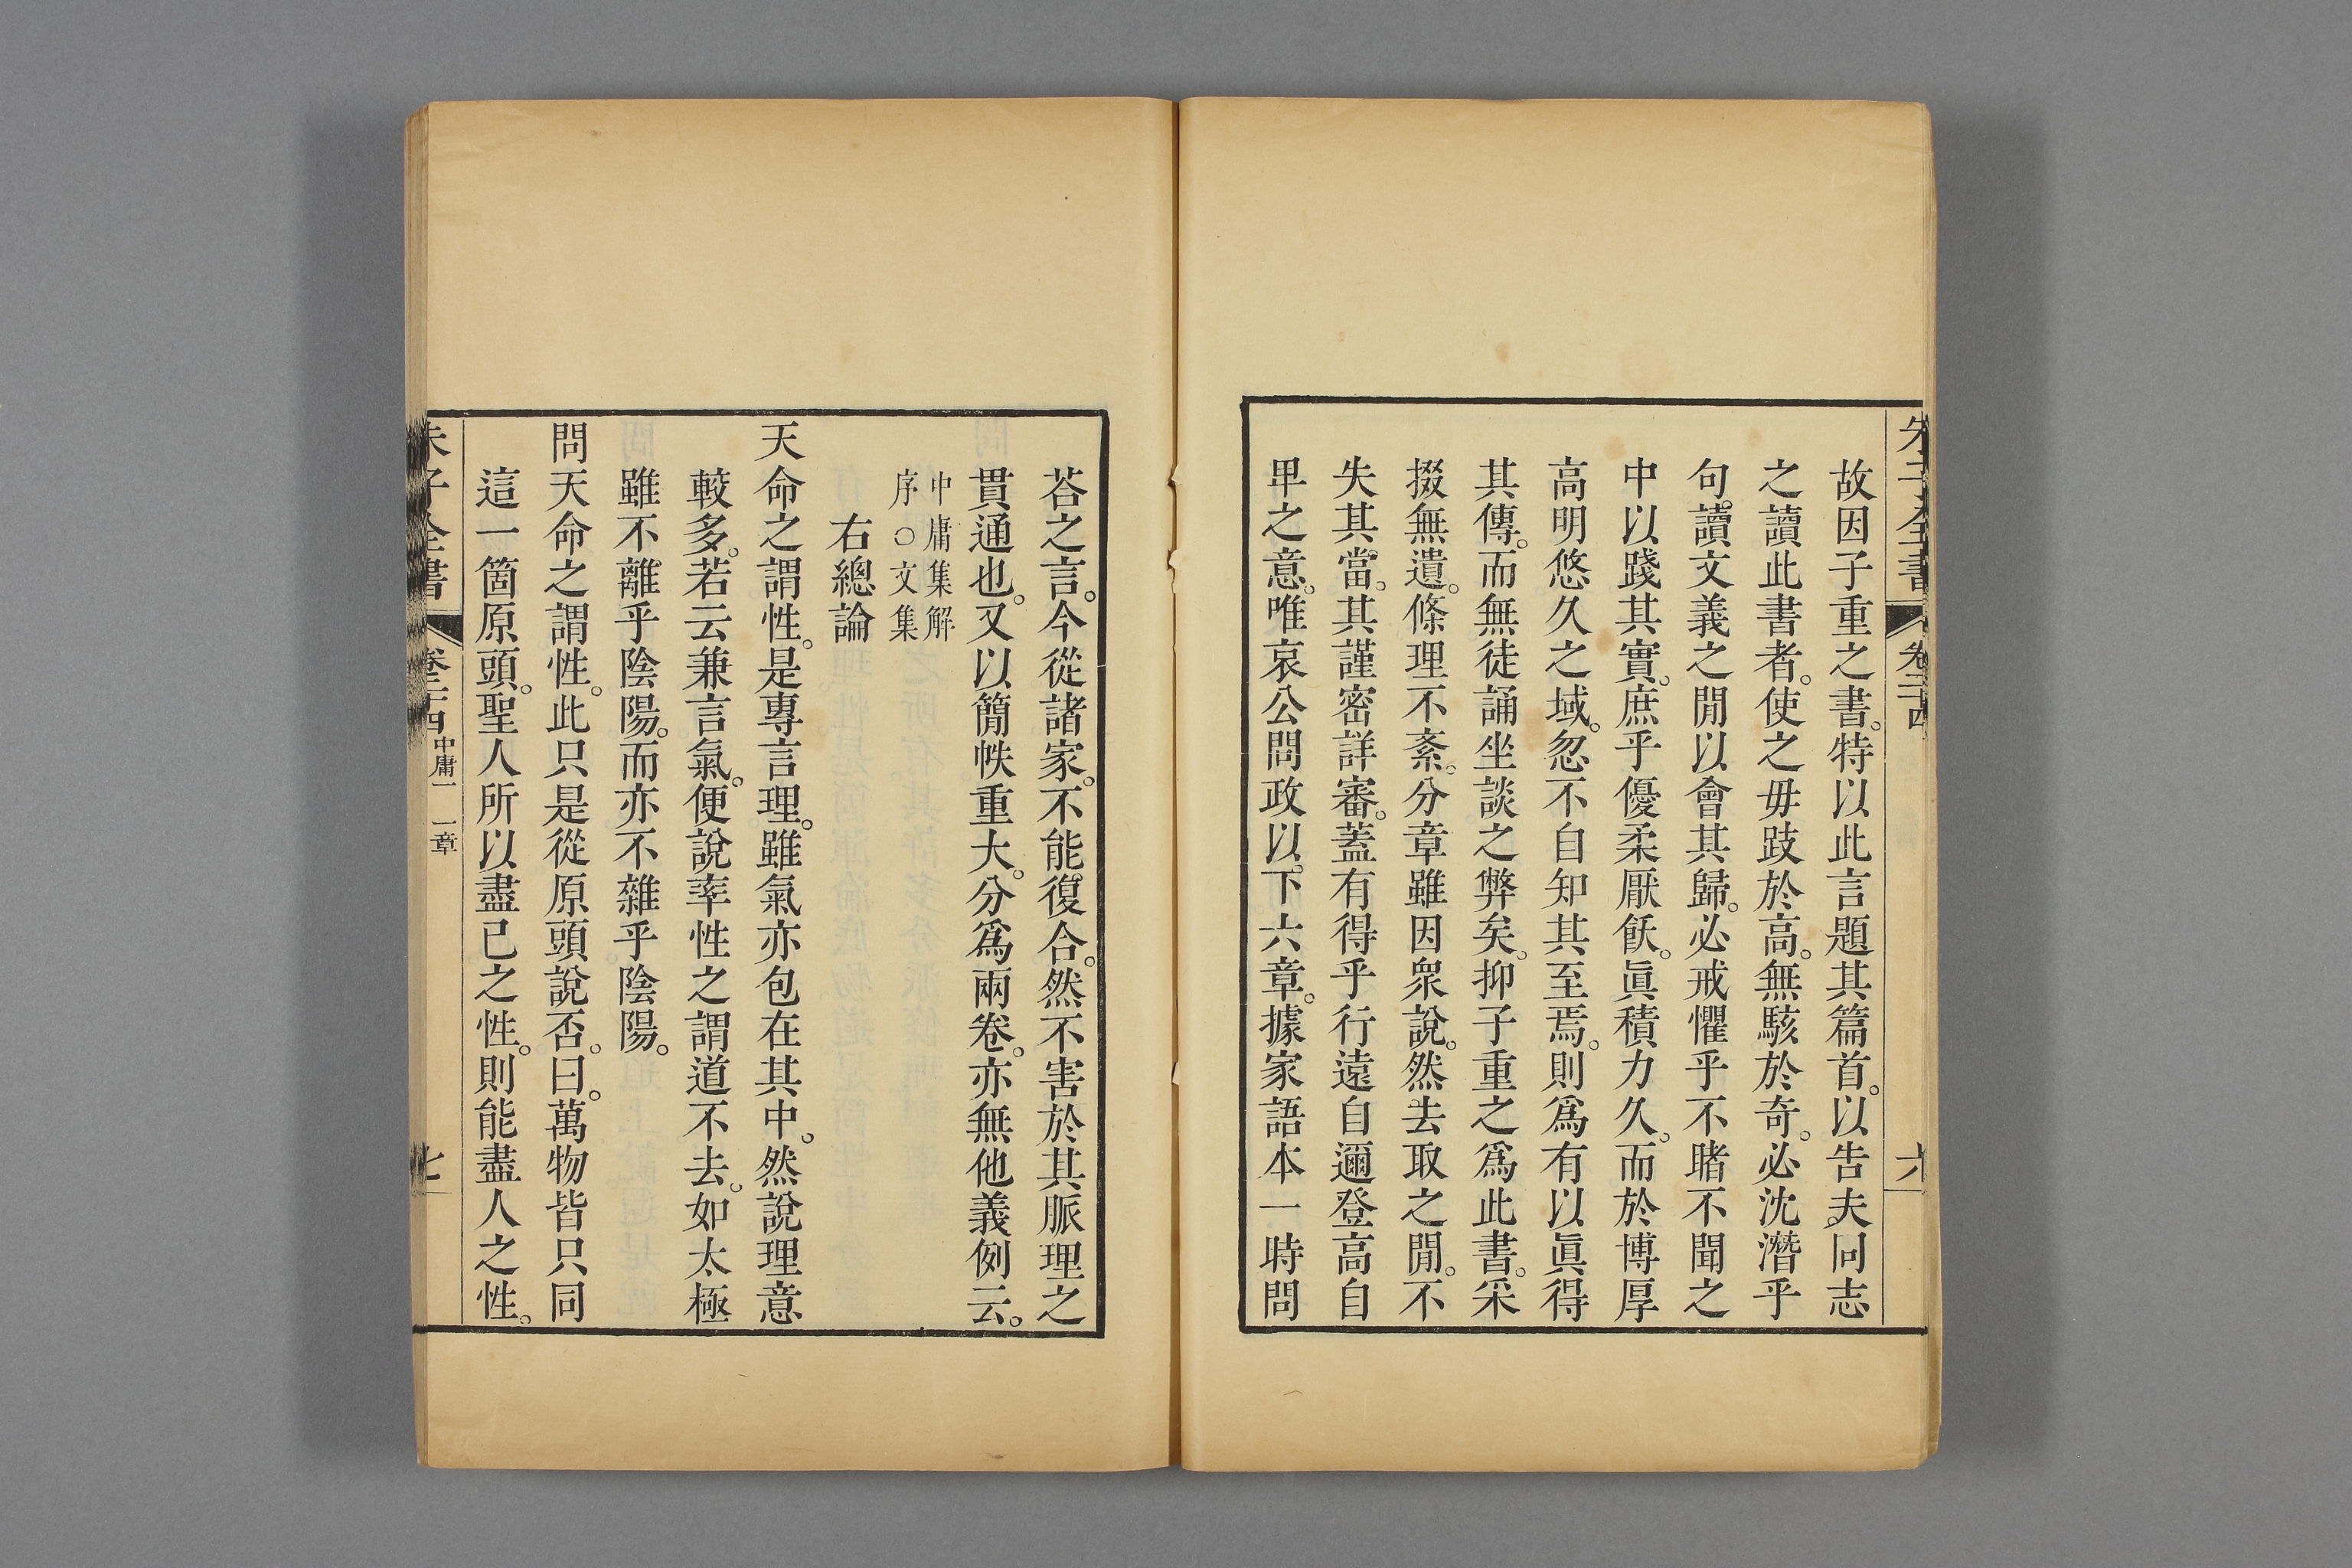 朱子全書 卷二十四 六
故因子重之書。特以此言題其篇首。以告夫同志
之讀此書者。使之毋跂於高。無駭於奇。必沈潛乎
句讀文義之閒以會其歸。必戒懼乎不睹不聞之
中以踐其實。庶乎優柔厭飫。眞積力久。而於博厚
高明悠久之域。忽不自知其至焉。則爲有以眞得
其傳。而無徒誦坐談之弊矣。抑子重之爲此書。采
掇無遺。條理不紊。分章雖因衆說。然去取之閒。不
失其當。其謹密詳審。蓋有得乎行遠自邇登高自
𤰞之意。唯哀公問政以。下六章。據家語本一時問
荅之言。今從諸家。不能復合。然不害於其脈理之
貫通也。又以簡帙重大。分爲兩卷。亦無他義例云。
中庸集解
序○文集
右總論
天命之謂性。是專言理。雖氣亦包在其中。然說理意
較多。若云兼言氣。便說率性之謂道不去。如太極
雖不離乎陰陽。而亦不雜乎陰陽。
問天命之謂性。此只是從原頭說否。曰。萬物皆只同
這一箇原頭。聖人所以盡已之性。則能盡人之性。
朱子全書 卷二十四 中庸一 一章 七